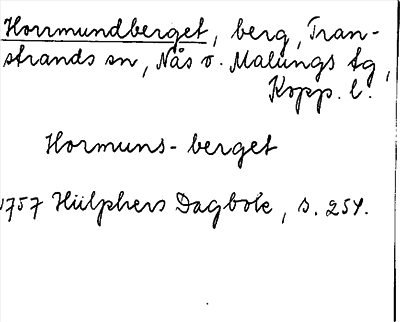 Horrmundberget, berg, Tran-
strands sn, Nås o. Malungs tg,
Kopp. l.
Hormuns-berget
1757 Hülphers Dagbok, s. 254.